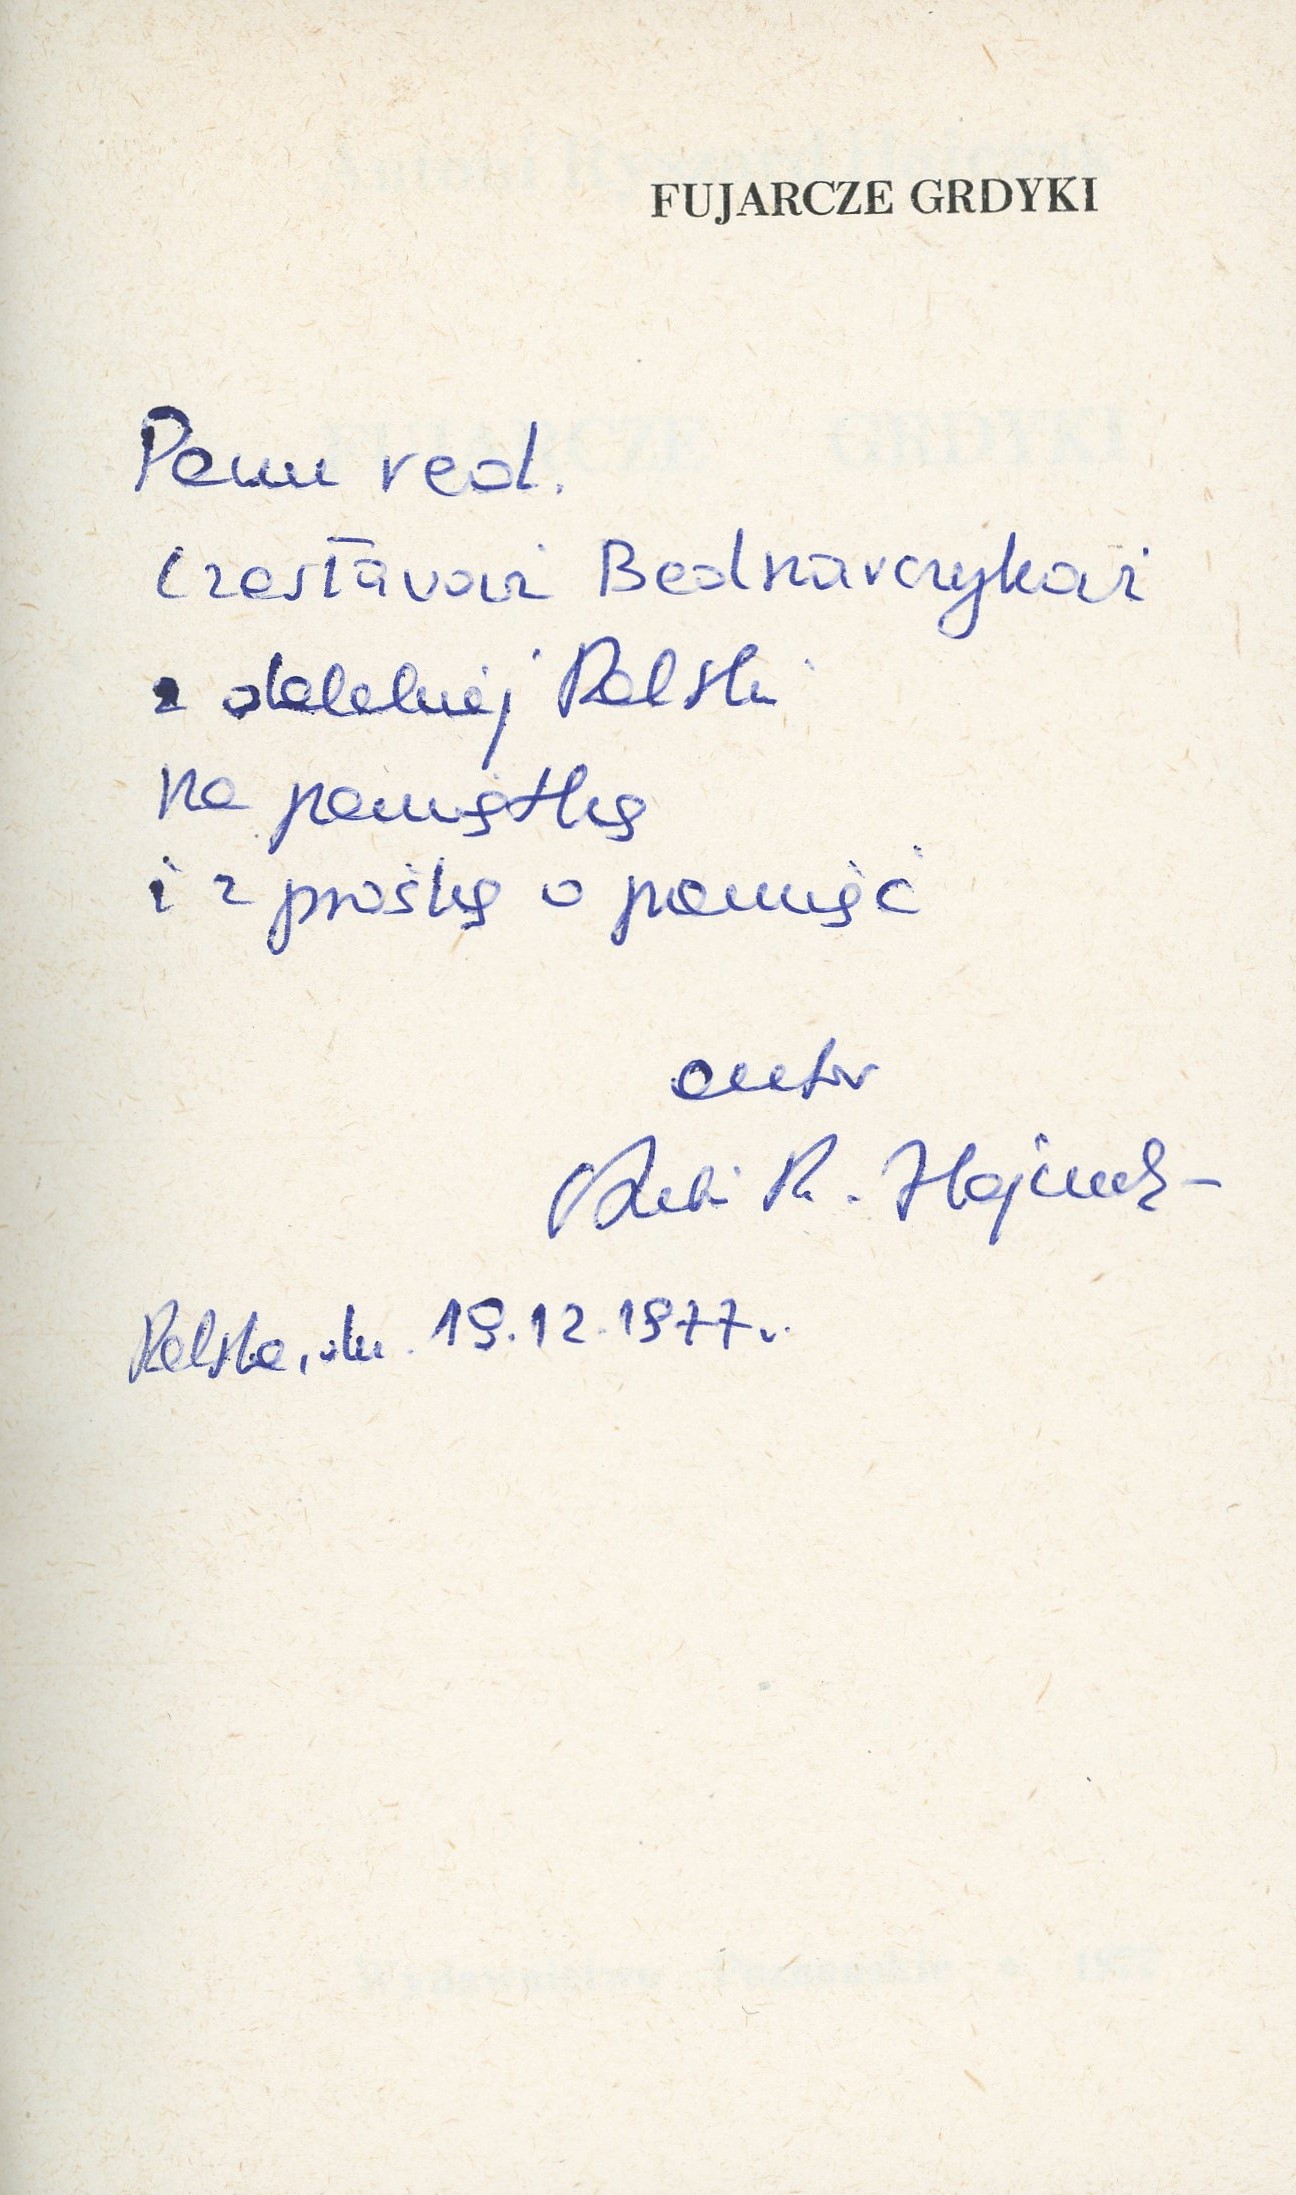 FUJARCZE GRDYKI
Panu red.
Czesławowi Bednarczykowi
z dalekiej Polski
na pamiątkę
i z prośbą o pamięć
autor
R. Hajduk
Polska, dn. 19.12.1977 r.